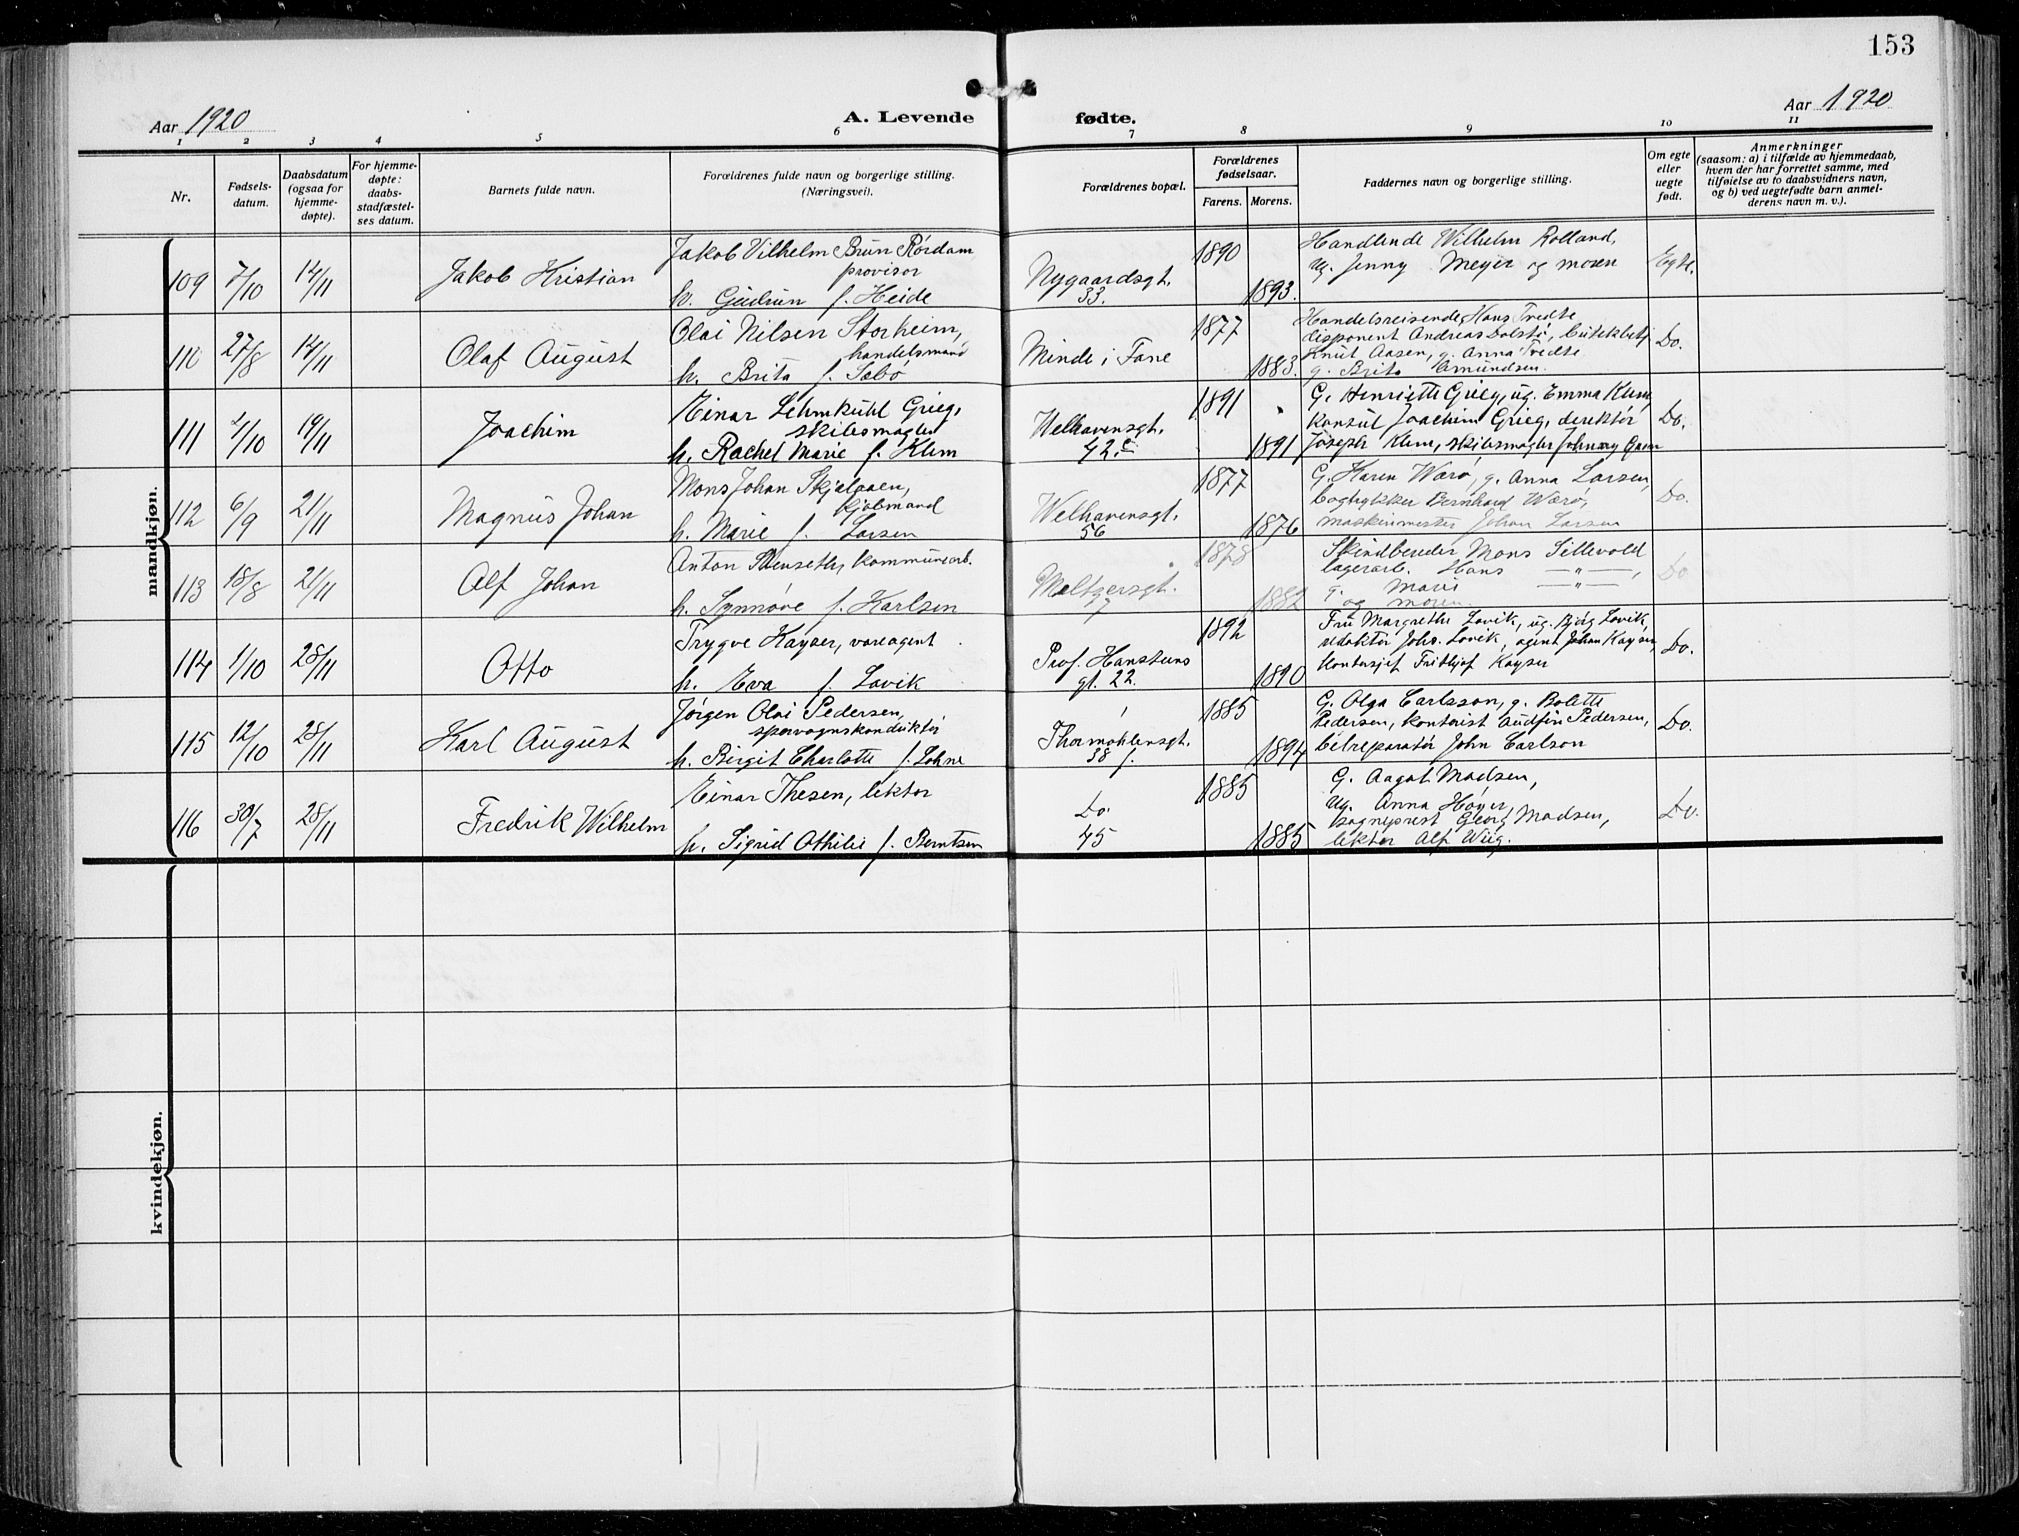 153
Aar 1920
A. Levende fødte.
Aar 1920
1 2 3 4 5 6 7 8 9 10 11
Nr.
Fødsels-
datum.
Daabsdatum
(ogsaa for
hjemme-
døpte).
For hjemme-
døpte:
daabs-
stadfæstel-
ses datum.
Barnets fulde navn.
Forældrenes fulde navn og borgerlige stilling.
(Næringsvei).
Forældrenes bopæl.
Forældrenes
fødselsaar.
Farens. Morens.
Faddernes navn og borgerlige stilling.
Om egte
eller
uegte
født.
Anmerkninger
(saasom: a) i tilfælde av hjemmedaab,
hvem der har forrettet samme, med
tilføielse av to daabsvidners navn,
og b) ved uegtefødte barn anmel-
derens navn m. v.).
mandkjøn.
109 7/10 14/11 Jakob Kristian
Jakob Vilhelm Brun Rördam
provisor
h. Gudrun f. Heide
Nygaardsgt.
33.
1890
1893.
Handlende Wilhelm Rolland,
ug. Jenny Meyer og moren
Egte.
110 27/8 14/11 Olaf August
Olai Nilsen Storheim,
handelsmand
h. Brita f. Sæbö
Minde i Fane
1877
1883.
Handelsreisende Hans Tredte
disponent Andreas Dalstö,
Knut Aasen, g. Anna Tredte
g. Brita Amundsen.
Do.
111 2/10 19/11 Joachim
Einar Lehmkuhl Grieg,
skibsmægler
h. Rachel Marie f. Klem
Welhavensgt.
42.c
1891
1891
G. Henriette Grieg, ug. Emma Klem
konsul Joachim Grieg, direktör
Joseph Klem, skibsmægler Johnny
Do.
112 6/9 21/11 Magnus Johan
Mons Johan Skjelaaen,
kjöbmand
h. Marie f. Larsen
Welhavensgt.
56
1877
1876
G. Karen Wærö, g. Anna Larsen,
bogtrykker Bernhard Wærö,
maskinmester Johan Larsen
Do.
113 18/8 21/11 Alf Johan
Anton Stenseth, kommunearb.
h. Synnöve f. Karlsen
Meltzersgt.
7
1878
1882
Skindbereder Mons Sillevold
lagerarb. Hans —"—,
g. Marie —"—
og moren.
Do
114 1/10 28/11 Otto
Trygve Kayser, vareagent
h. Eva f. Lövik
Prof. Hansteens
gt. 22.
1892
1890
Fru Margrethe Lövik, ug. Lövik,
redaktör Johs. Lövik, agent Johan Kayser,
kontorsjef Fridtjof Kayser
Do.
115 12/10 28/11 Karl August
Jörgen Olai Pedersen,
sporvognskonduktör
h. Birgit Charlotte f. Lohne
Thormöhlensgt.
38 f.
1885
1894
G. Olga Carlsson, g. Bolette
Pedersen, kontorist Audfin Pedersen,
bilreparatör John Carlson
Do.
116 30/7 28/11 Fredrik Wilhelm
Einar Thesen, lektor
h. Sigrid Othilie f. Berntsen
Do.
45
1885
1885
G. Aagot Madsen,
ug. Anna Höyer,
sogneprest Georg Madsen,
lektor Alf Wiig.
Do.
kvindekjøn.